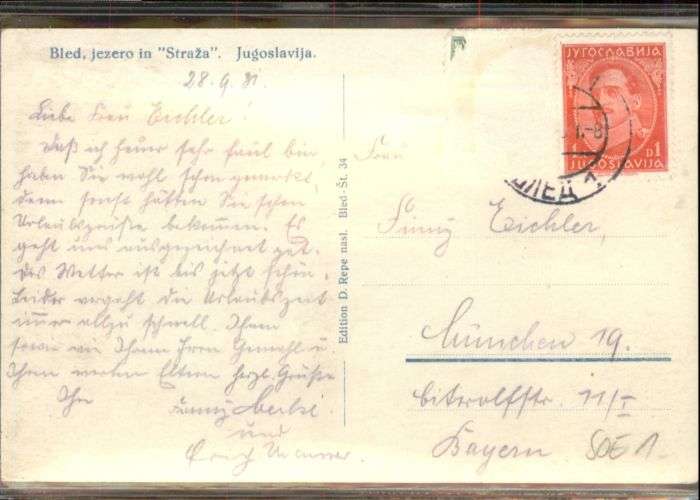 Bled, jezero in "Straža". Jugoslavija.
28.9.31.
Liebe Frau Eichler!
Daß ich heuer sehr faul bin,
haben Sie wohl schon gemerkt,
denn sonst hätten Sie schon
Urlaubsgrüße bekommen. Es
geht uns ausgezeichnet gut.
Das Wetter ist bis jetzt schön.
Leider vergeht die Urlaubszeit
immer allzu schnell. Ihnen
sowie Ihrem Herrn Gemahl u.
Ihren werten Eltern herzl. Grüße
Ihre
Fanny
und
Edition D. Repe nasl. Bled-Št. 34
ЈУГОСЛАВИЈА
1 D
JUGOSLAVIJA
БЛЕД 1
Frau
Fanny Eichler,
München 19.
Bitrolfstr. 11/I
Bayern
SOE 1.